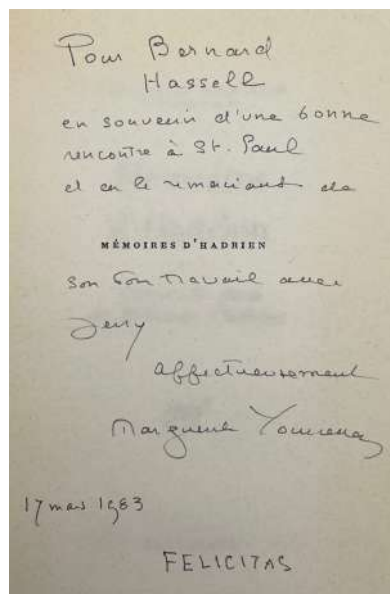 Pour Bernard
Hassell
en souvenir d'une bonne
rencontre à St. Paul
et en le remerciant de
MÉMOIRES D'HADRIEN
son bon travail avec
Jerry
affectueusement
Marguerite Yourcenar
17 mars 1983
FELICITAS